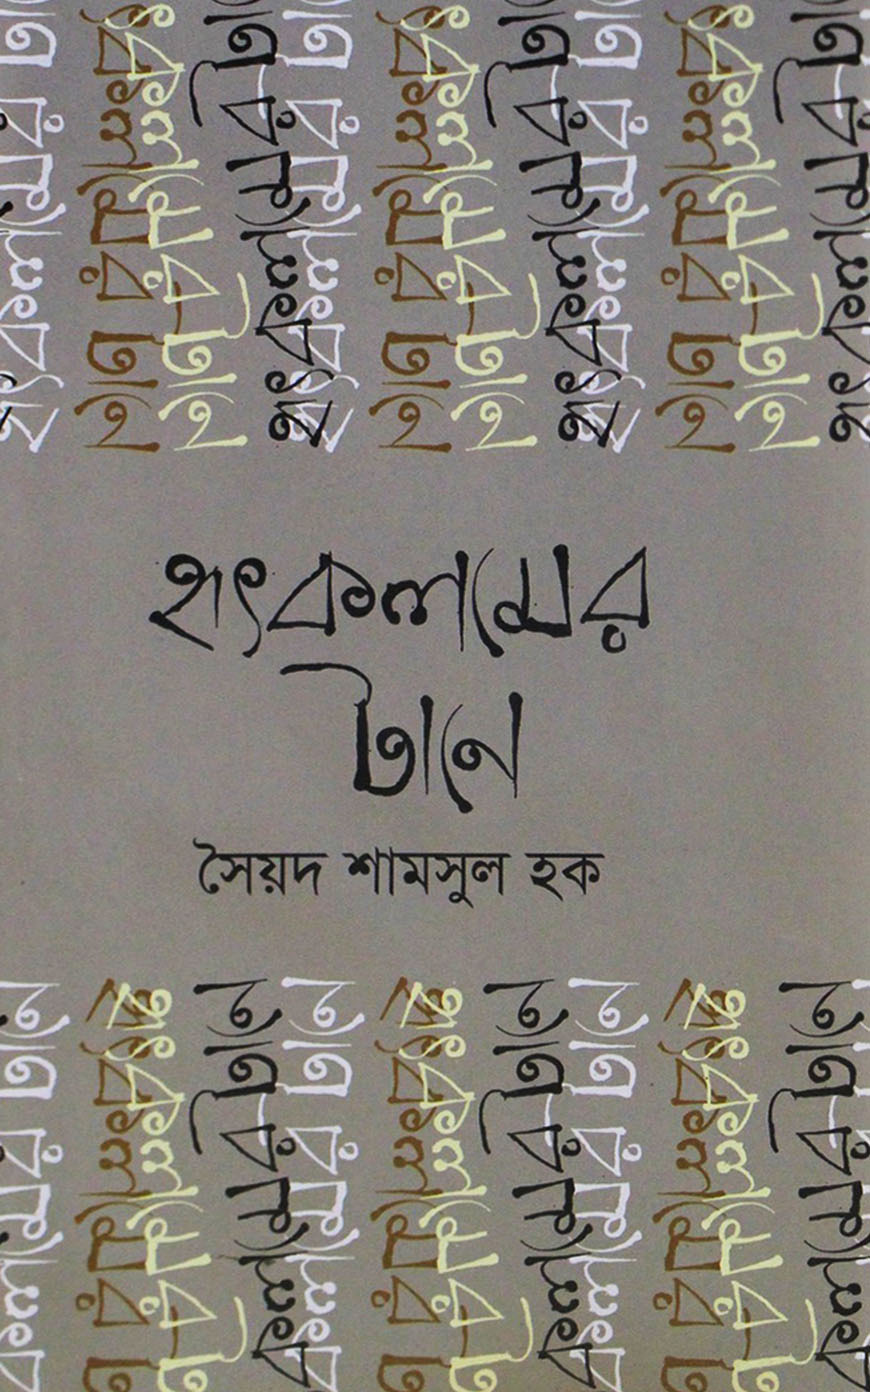 হৃৎকলমের
টানে
সৈয়দ শামসুল হক